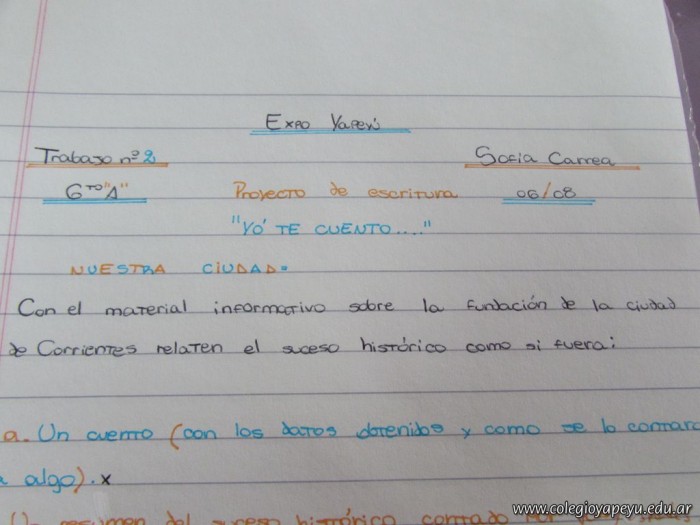 Expo Yapeyú
Trabajo nº 2
Sofia Correa
6to "A"
Proyecto de escritura
06/08
"YO TE CUENTO...."
NUESTRA CIUDAD.
Con el material informativo sobre la fundación de la ciudad
de Corrientes relaten el suceso histórico como si fuera:
a. Un cuento (con los datos obtenidos y como se lo contara
a algo). x
resumen del suceso histórico contado
www.colegioyapeyu.edu.ar